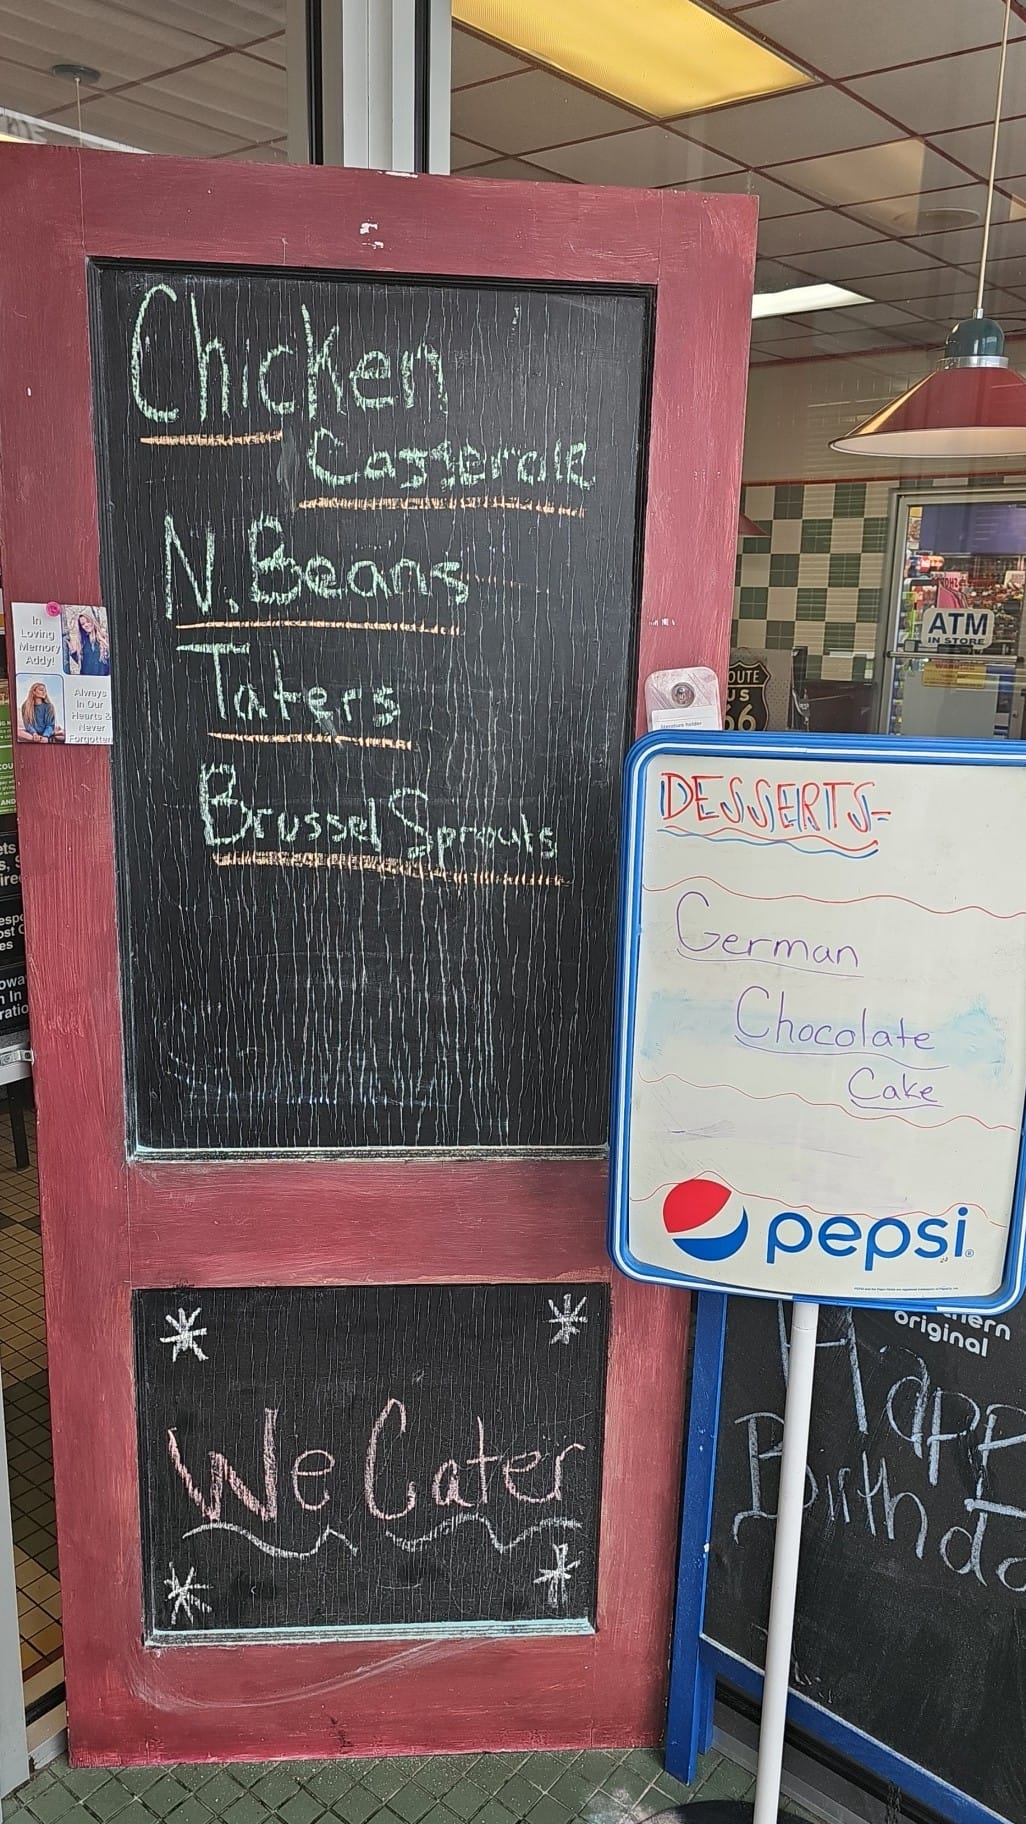 Chicken
Casserole
N. Beans
Taters
Brussel Sprouts
We Cater
In
Loving
Memory
Addy!
Always
In Our
Hearts &
Never
Forgotten
ATM
IN STORE
ROUTE
US
66
literature holder
DESSERTS-
German
Chocolate
Cake
pepsi
original
Happ
Birthda